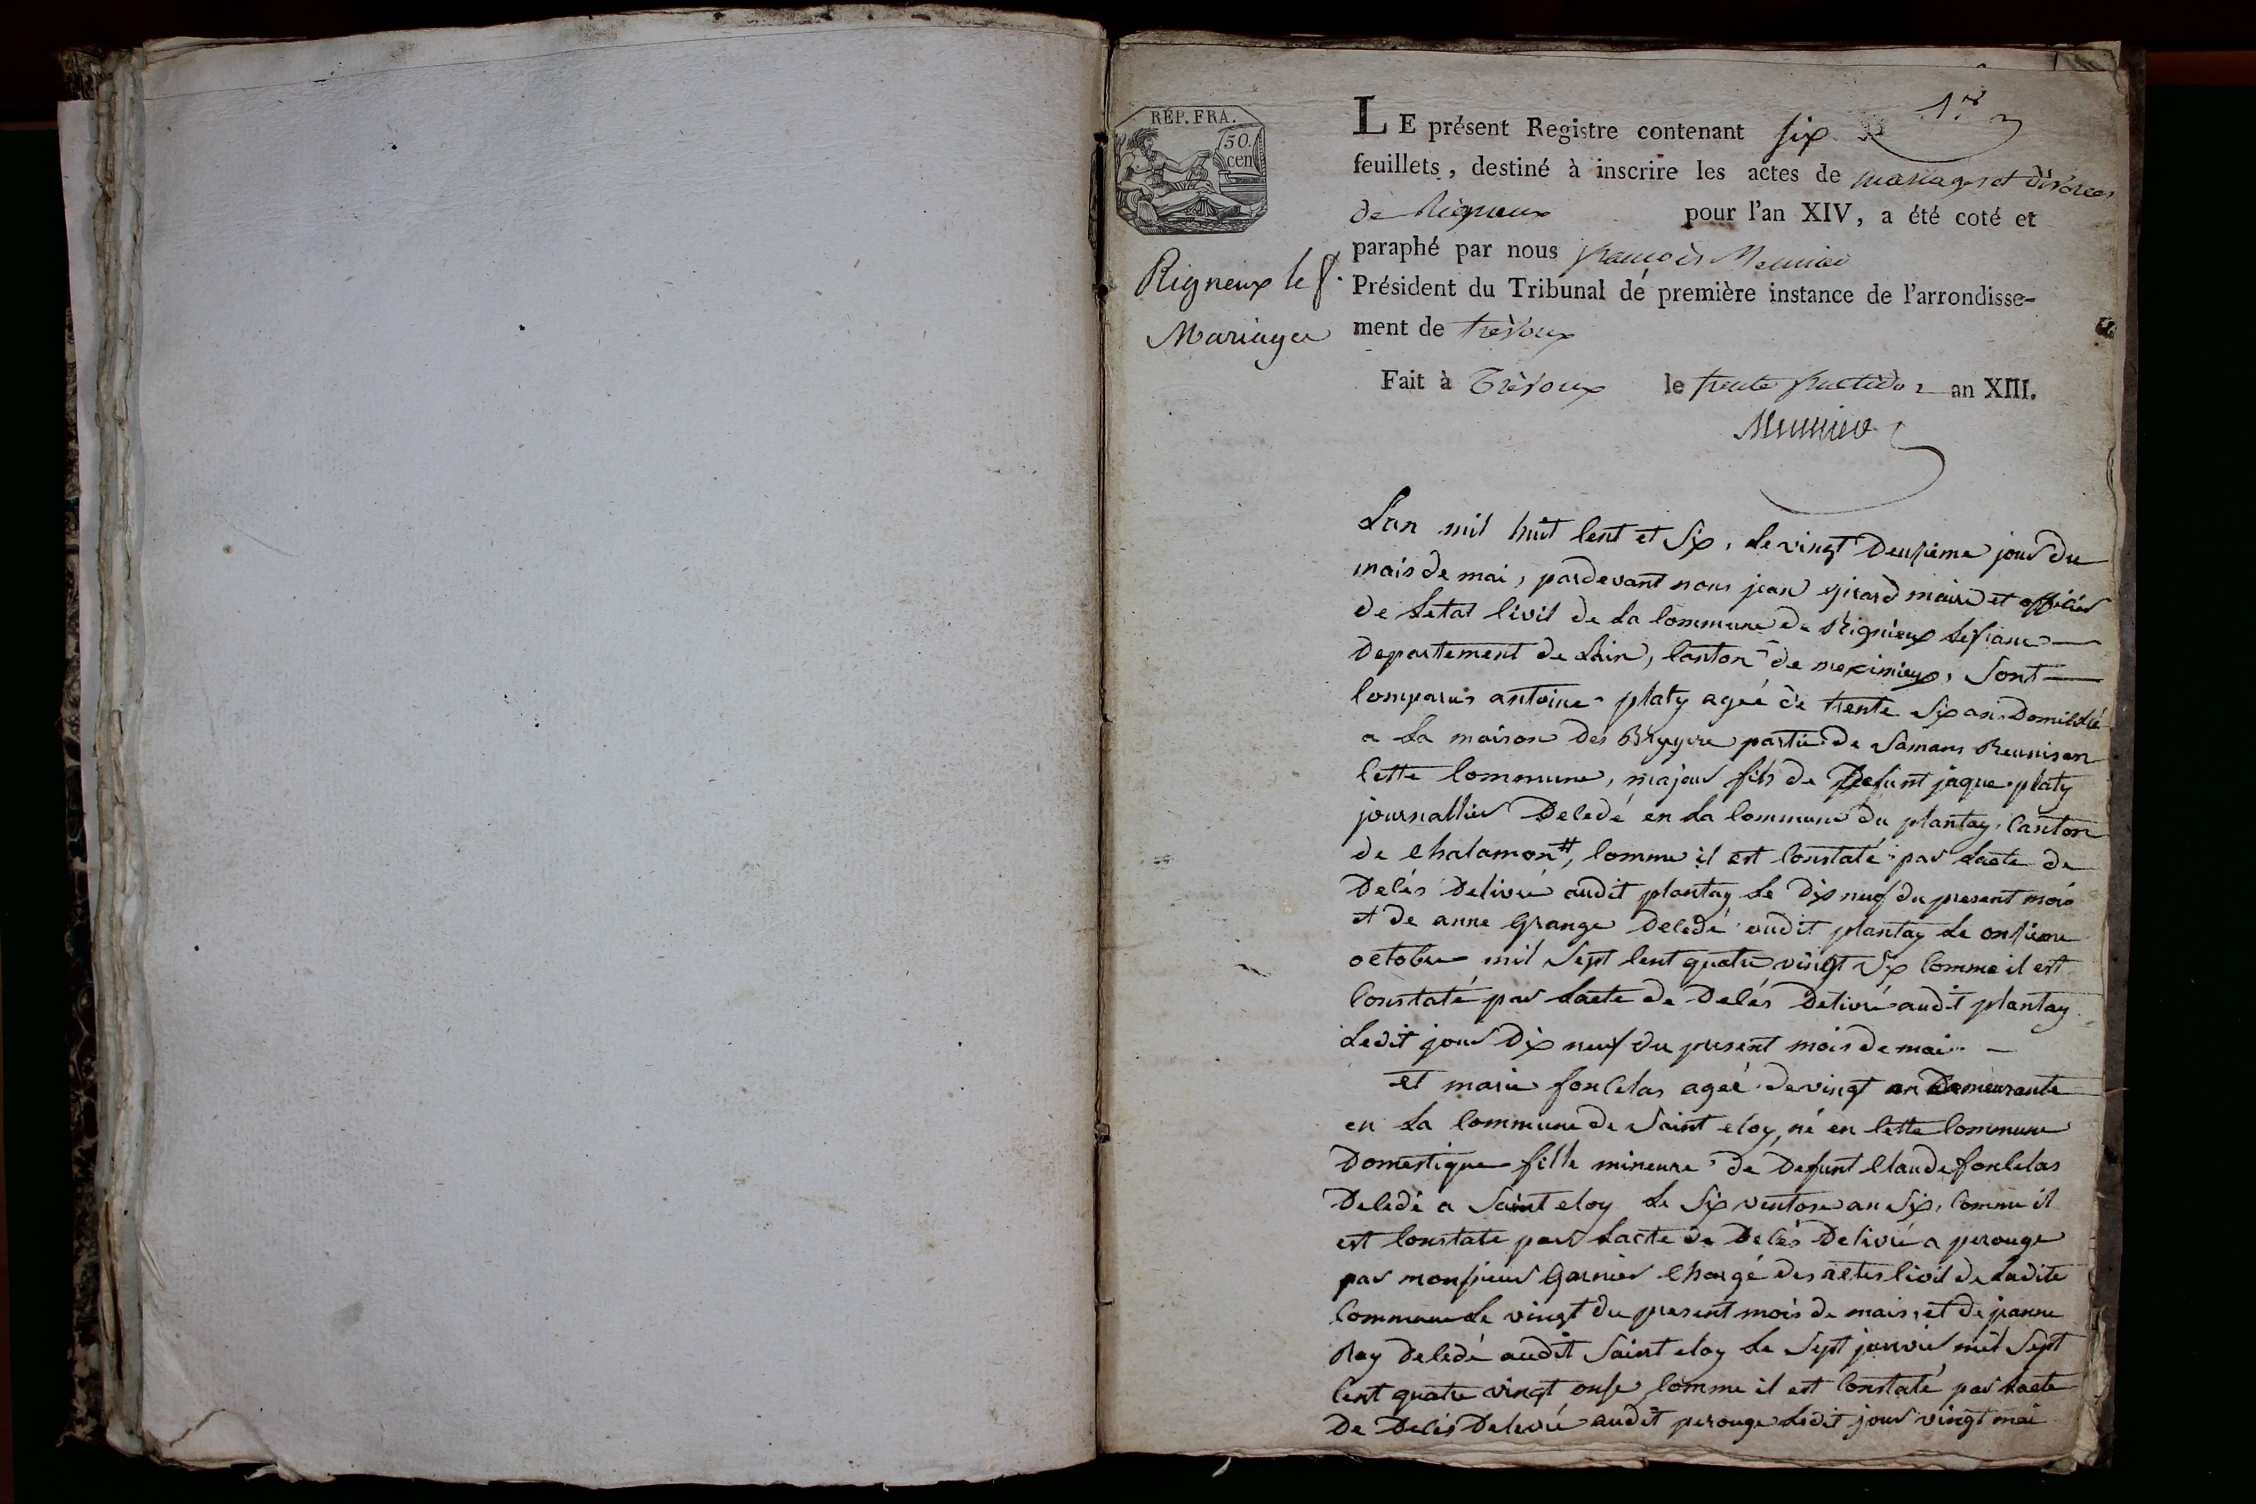 1er
REP. FRA.
50.
cen
LE présent Registre contenant six
feuillets, destiné à inscrire les actes de mariages et divorces
de Rigneux pour l'an XIV, a été coté et
paraphé par nous francois Meunier
Président du Tribunal de première instance de l'arrondisse-
ment de trévoux
Fait à Trévoux le trente fructidor an XIII.
Meunier
Rigneux le f.
Mariages
Lan mil huit Cent et Six, Le vingt Deuxieme jour du
mois de mai, pardevant nous jean girard maire et officier
de Letat Civil de La Commune de Rignieux Lefranc
Departement de Lain, Canton de meximieux, Sont
Comparus antoine platy ageé de trente Six ans Domicilié
a La maison des Bruyere partie de Samans Reunis en
Cette Commune, majeur fils de Defunt jaque platy
journallier Decedé en La Commune du plantay, Canton
de Chalamont, Comme il est Constaté par Lacte de
Decés Delivré audit plantay Le Dix neuf du present mois
et de anne Grange Decedé audit plantay Le onsieme
octobre mil Sept Cent quatre vingt Six Comme il est
Constaté par Lacte de Decés Delivré audit plantay
Ledit jour Dix neuf du present mois de mai
et marie fonCelas ageé de vingt an Demeurante
en La Commune de Saint eloy, né en Cette Commune
Domestique fille mineure de Defunt Claude fonCelas
Decedé a Saint eloy Le Six ventose an Six, Comme il
est Constate par Lacte de Decés Delivré a perouge
par monsieur Garnier Chargé des actes Civil de Ladite
Commune Le vingt du present mois de mais, et de janne
Ray Decedé audit Saint eloy Le Sept janvié mil Sept
Cent quatre vingt onse Comme il est Constaté par Lacte
De Decés Delevré audit perouge Ledit jour vingt mai